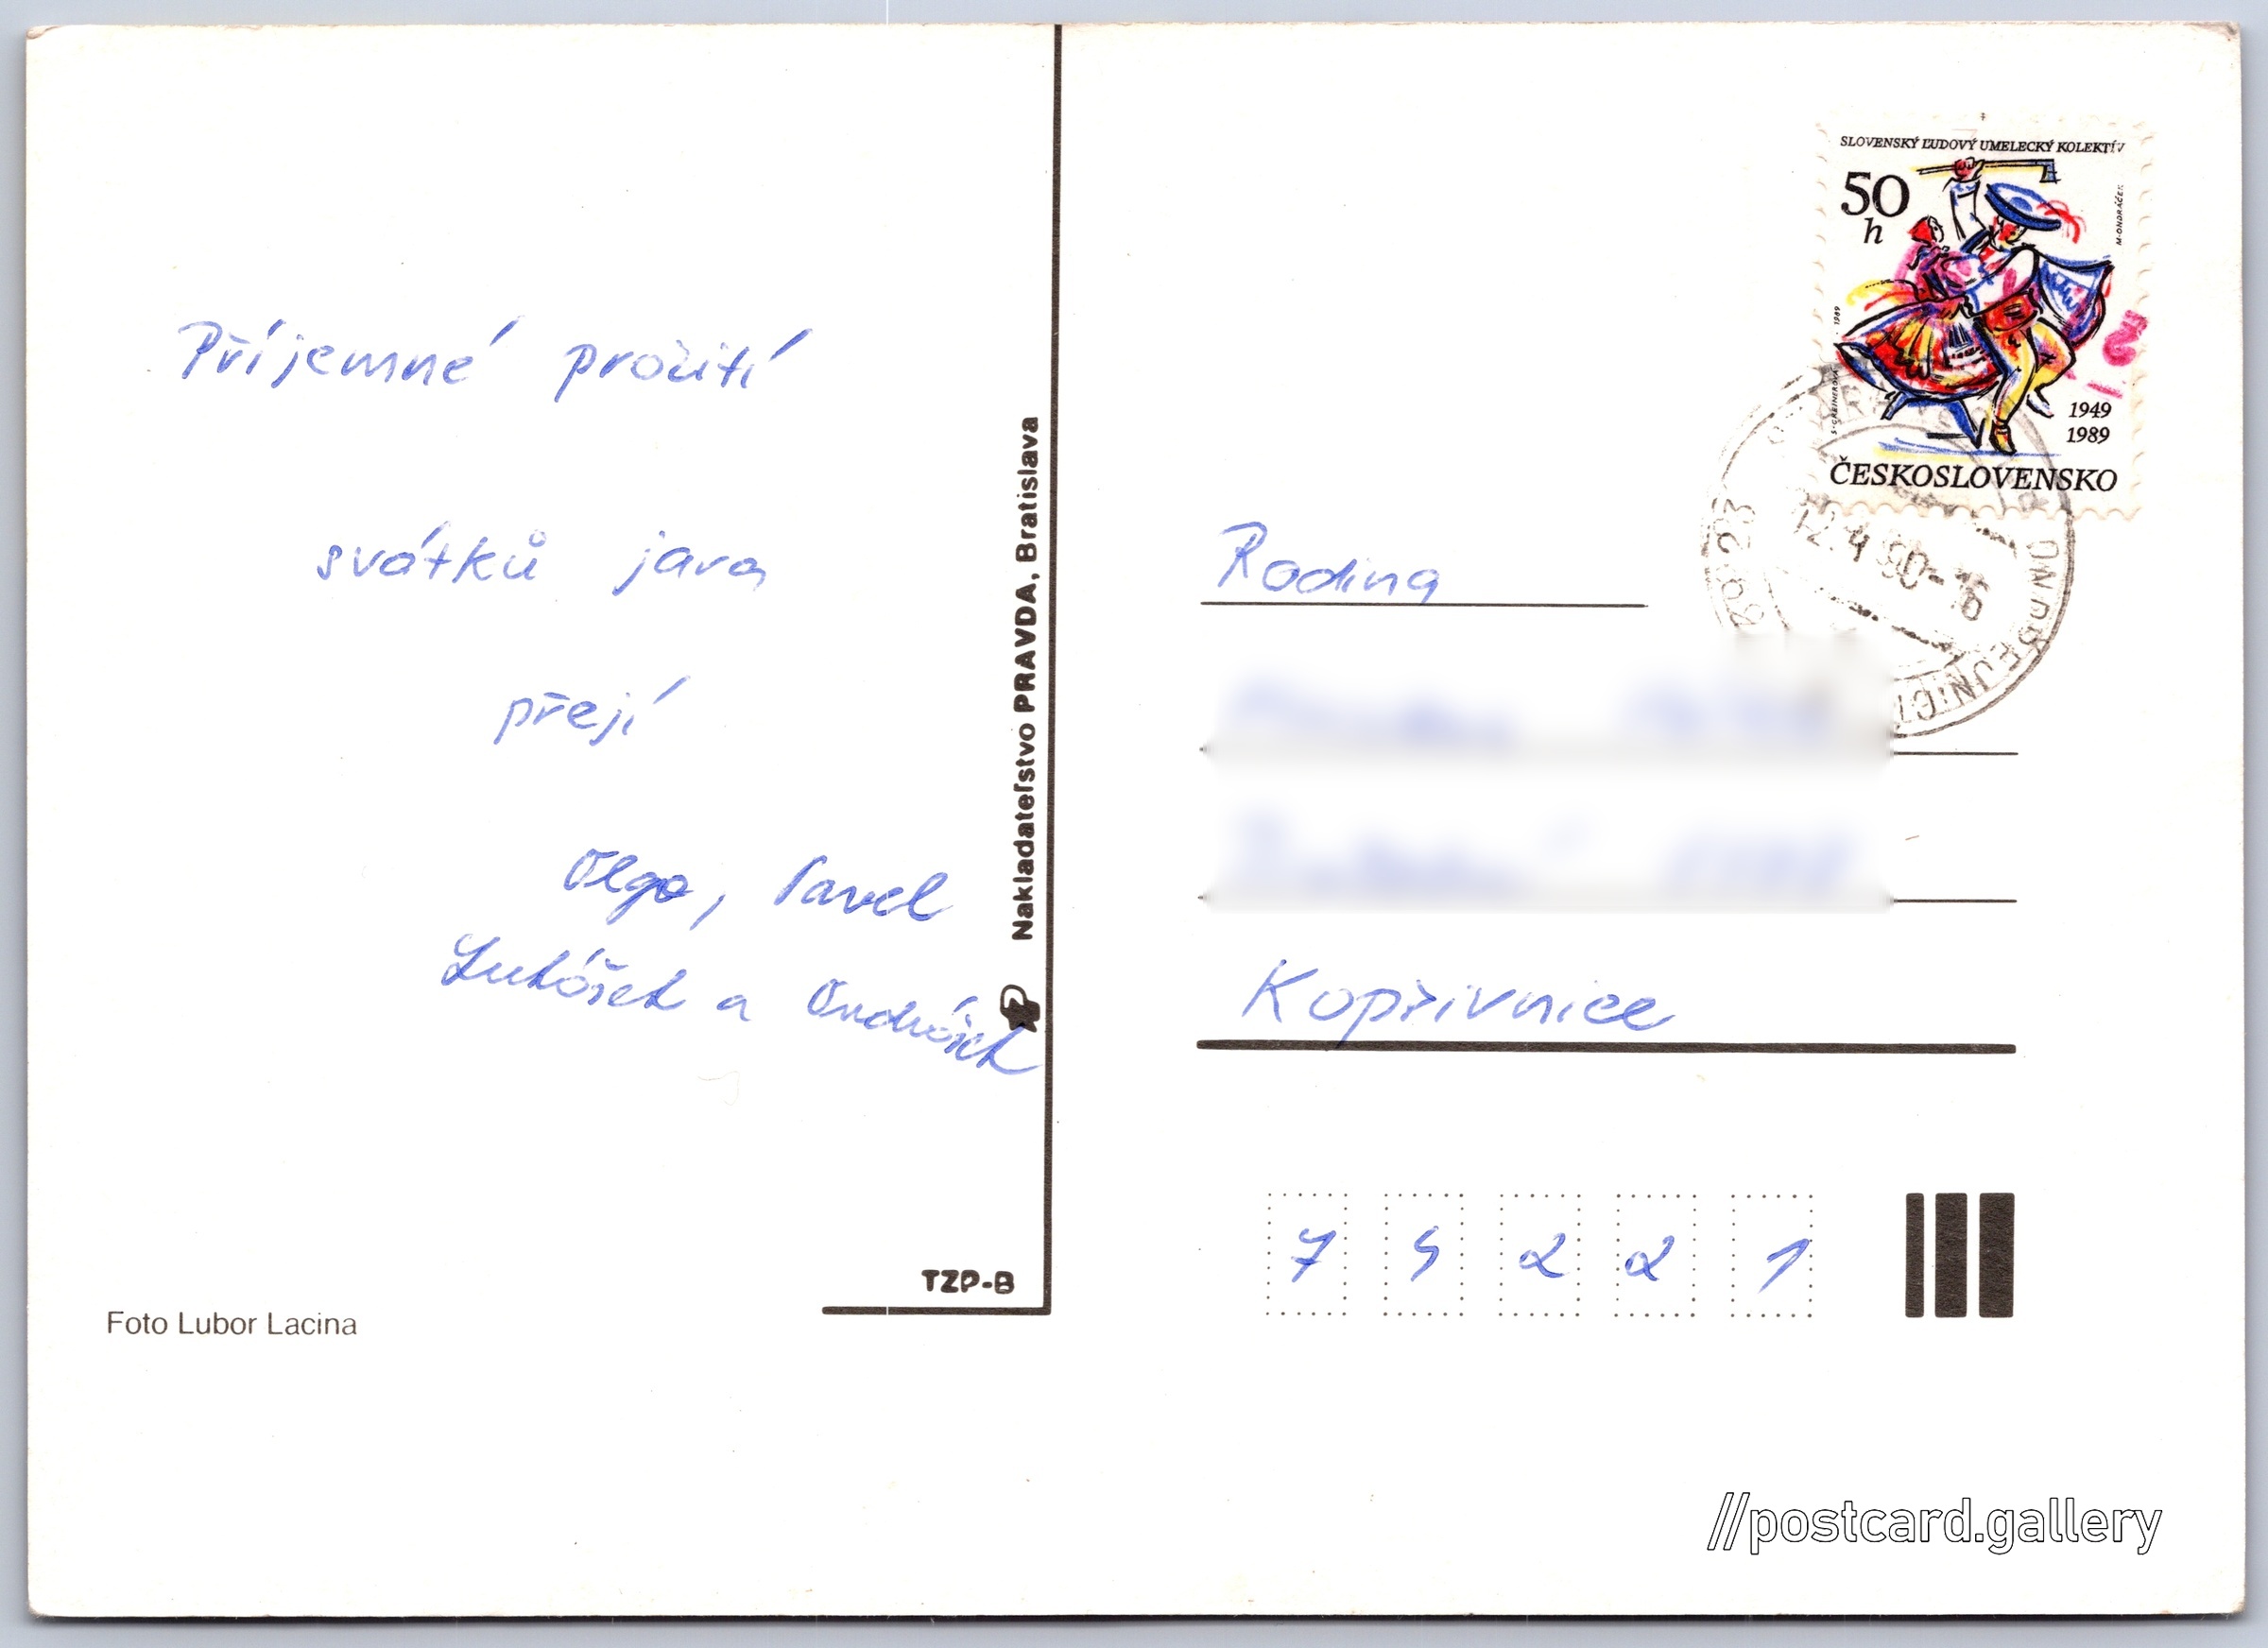 Příjemné prožití
svátků jara
přejí
Olga, Pavel
Lukášek a Ondrášek
Foto Lubor Lacina
TZP-B
Nakladateľstvo PRAVDA, Bratislava
SLOVENSKÝ ĽUDOVÝ UMELECKÝ KOLEKTÍV
50
h
M·ONDRÁČEK
1989
1949
1989
ČESKOSLOVENSKO
12.4.90-16
Rodina
Kopřivnice
7 4 2 2 1
//postcard.gallery